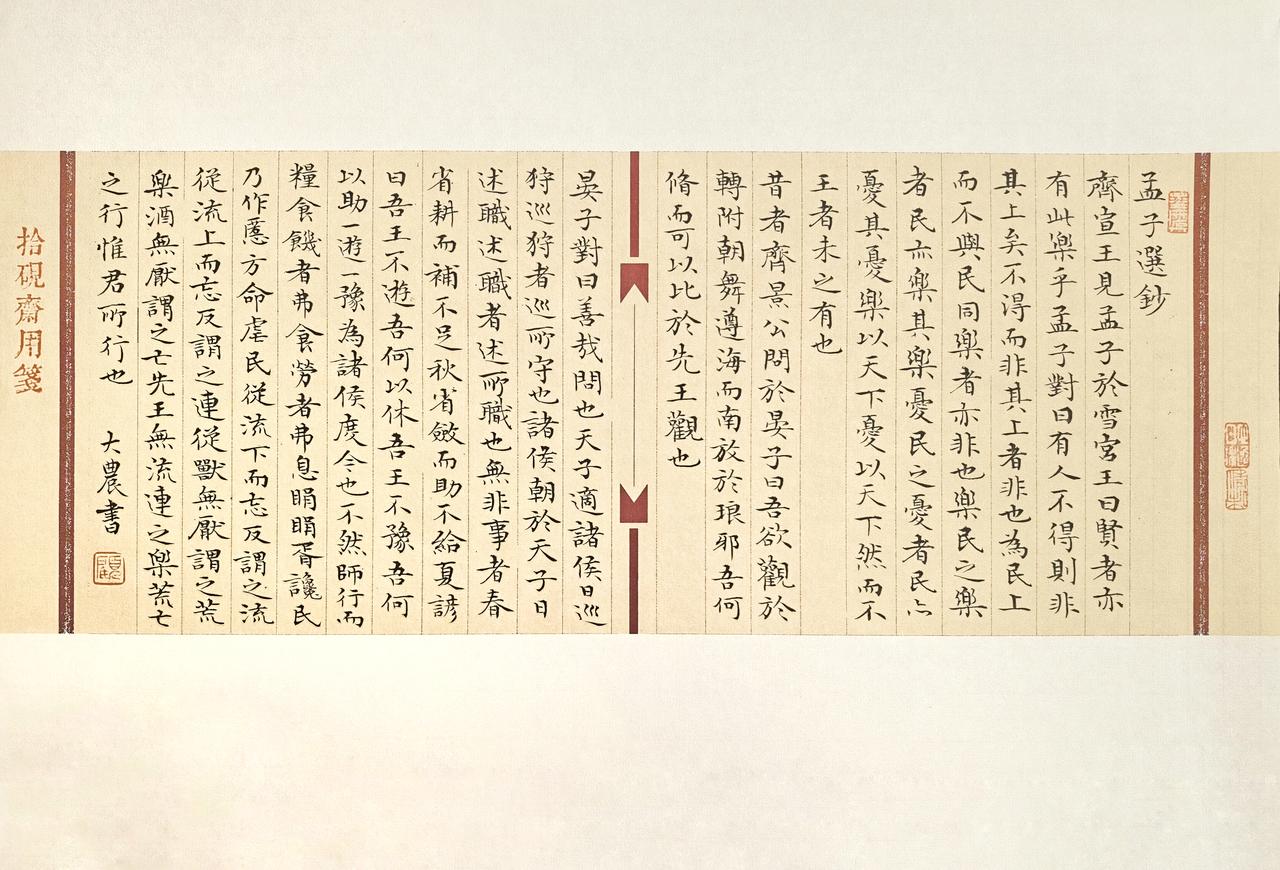 孟子選鈔
齊宣王見孟子於雪宮王曰賢者亦
有此樂乎孟子對曰有人不得則非
其上矣不得而非其上者非也為民上
而不與民同樂者亦非也樂民之樂
者民亦樂其樂憂民之憂者民亦
憂其憂樂以天下憂以天下然而不
王者未之有也
昔者齊景公問於晏子曰吾欲觀於
轉附朝舞遵海而南放於琅邪吾何
脩而可以比於先王觀也
晏子對曰善哉問也天子適諸侯曰巡
狩巡狩者巡所守也諸侯朝於天子曰
述職述職者述所職也無非事者春
省耕而補不足秋省斂而助不給夏諺
曰吾王不遊吾何以休吾王不豫吾何
以助一遊一豫為諸侯度今也不然師行而
糧食饑者弗食勞者弗息睊睊胥讒民
乃作慝方命虐民從流下而忘反謂之流
從流上而忘反謂之連從獸無厭謂之荒
樂酒無厭謂之亡先王無流連之樂荒亡
之行惟君所行也
大農書
拾硯齋用箋